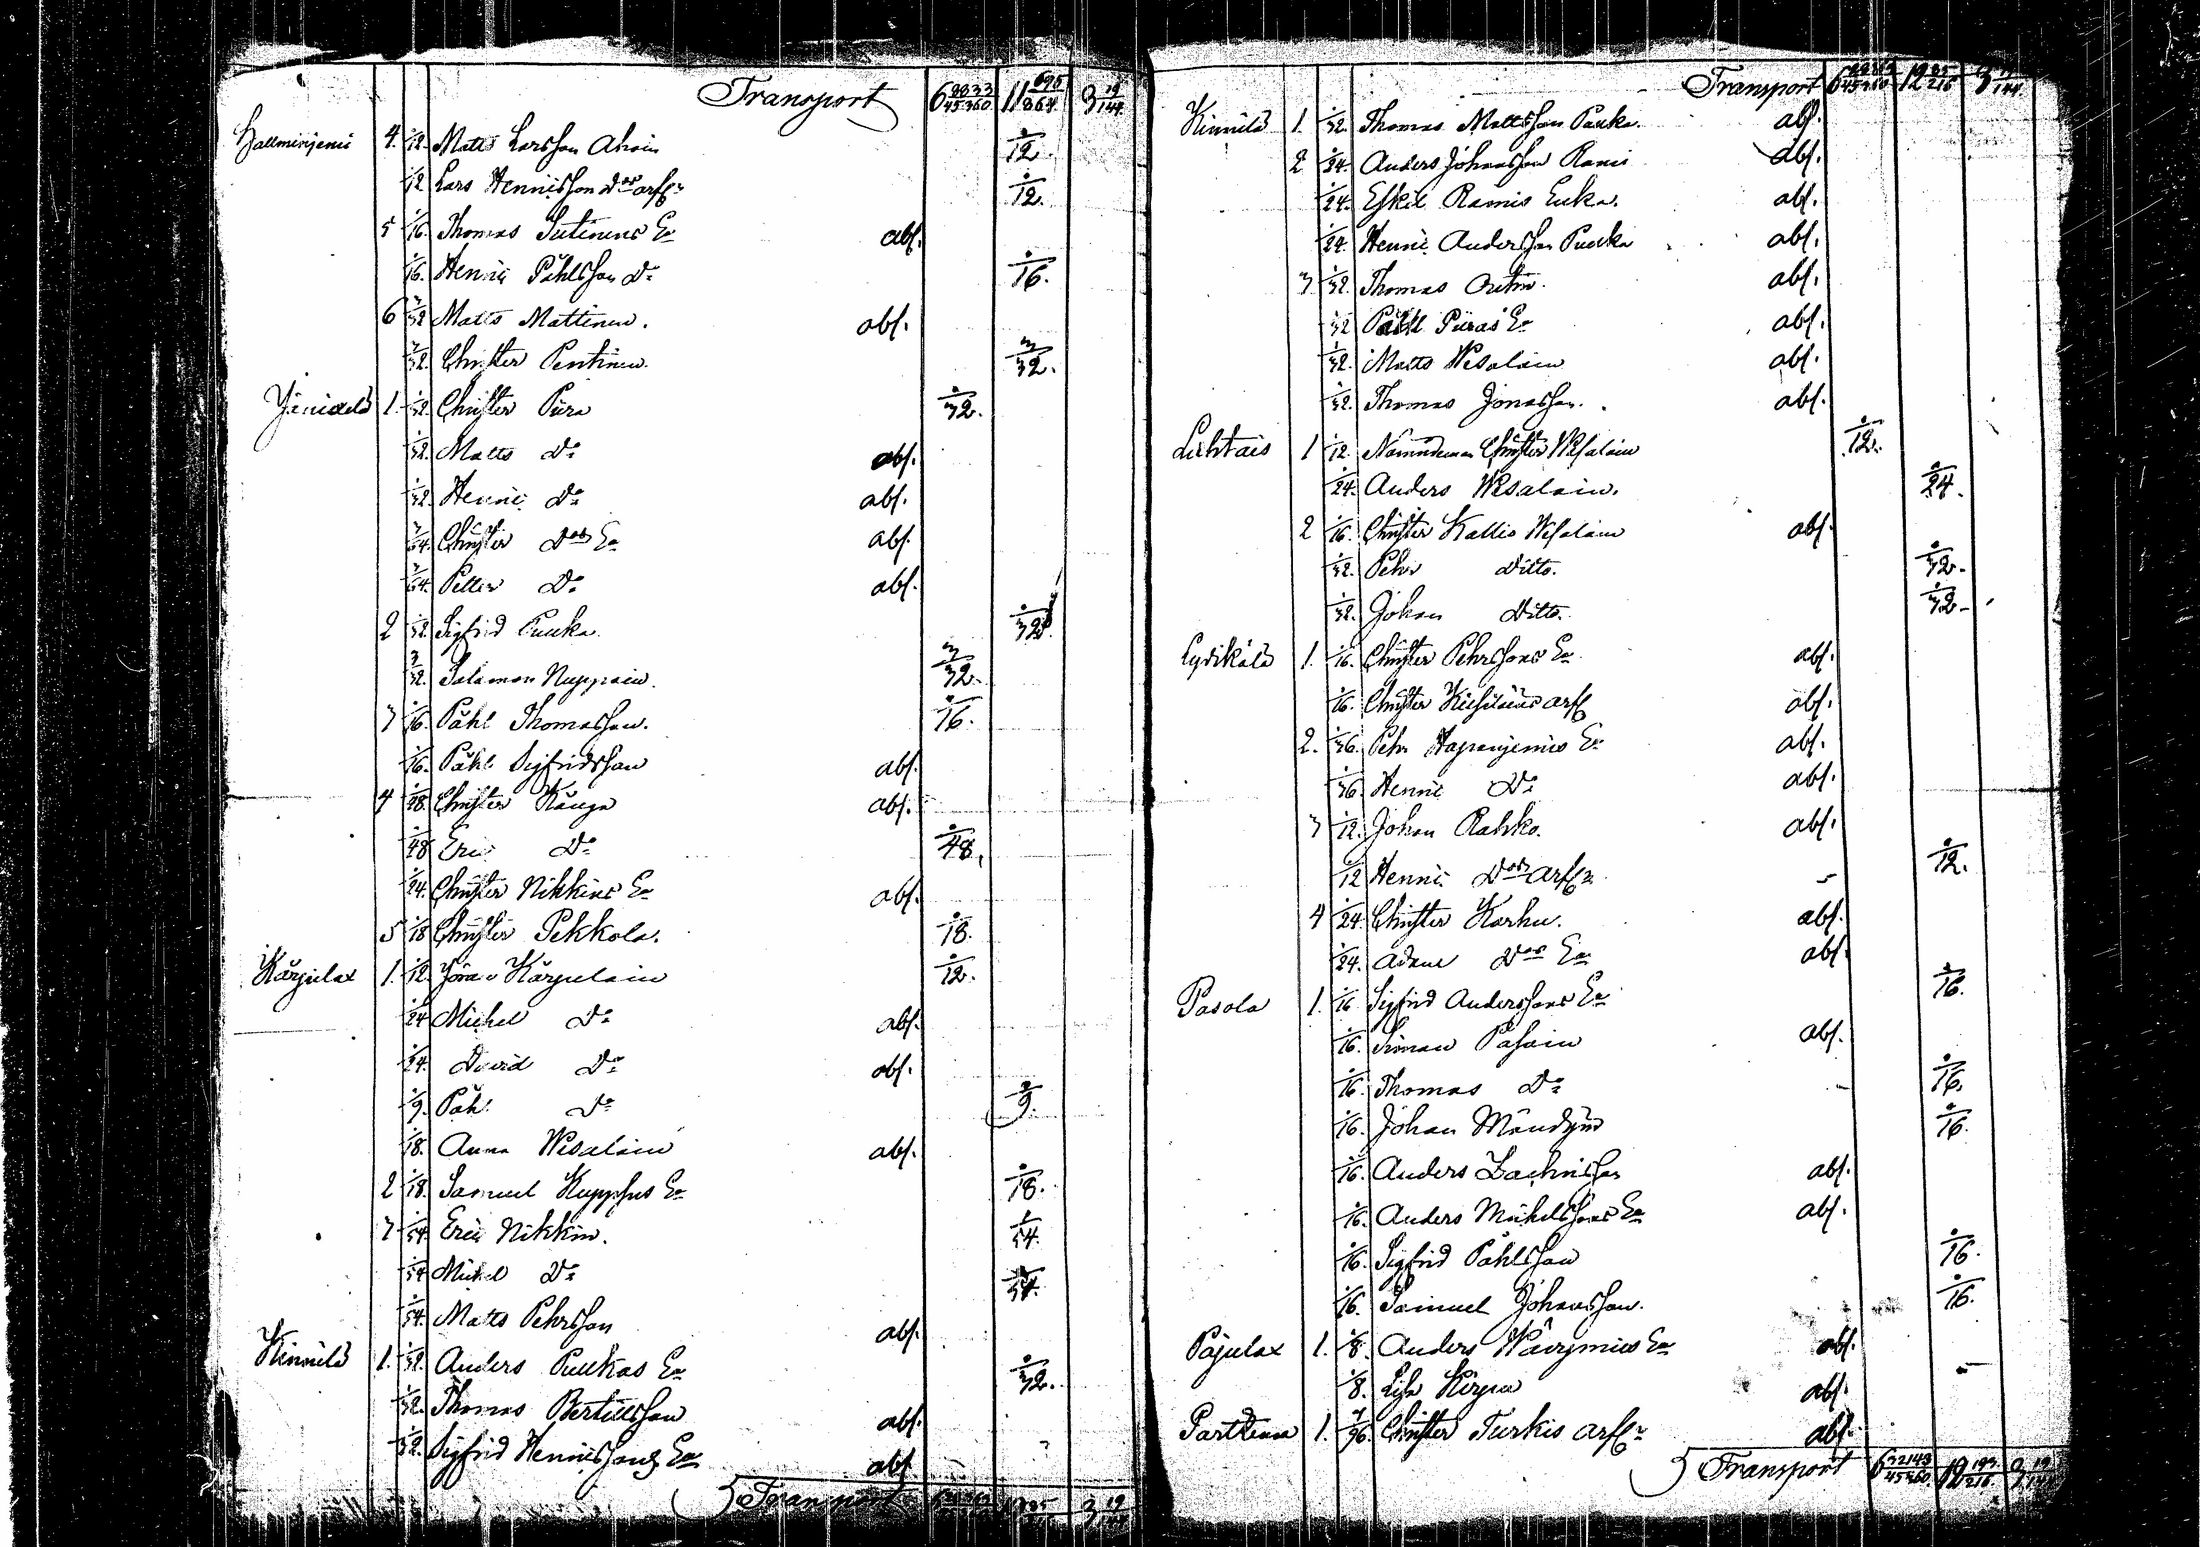 Transport 6 8833/45360 11 695/864 3 19/144
4. 1/12. Matts Larsson Ahoin 1/12.
1/12 Lars Hennisson Dos arf:r 1/12.
5 1/16. Thomas En abs.
1/16. Henric Påhlsson Do 1/16.
6 3/32 Matts Mattinen. abs.
3/32. Christer Pentinen. 3/32.
1. 1/32. Christer Püra 1/32.
1/32. Matts Do abs.
1/32. Henric Do abs.
1/64. Christer Dos En abs.
1/64. Petter Do abs.
2 1/32. Sigfrid Puuka. 1/32.
3/32. Salamon Nuppoin. 3/32.
3 1/16. Påhl Thomasson. 1/16.
1/16. Påhl Sigfridsson abs.
4 1/48. Christer Kånga abs.
1/48 Eric Do 1/48.
1/24. Christer Nikkins En abs.
5 1/18 Christer Pekkola. 1/18.
Kärpulax 1. 1/12. Jöran Kärpulain 1/12.
1/24 Michel Do abs.
1/24. David Do abs.
1/9. Påhl Do 1/9.
1/18. Anna Wesalain abs.
2 1/18. Samuel En 1/18.
3 1/54. Eric Nikkin. 1/54.
1/54 Michel Do 1/54.
1/54. Matts Pehrsson abs.
Kinnila 1. 1/32. Anders Puukas En 1/32.
1/32. Thomas Bertilsson abs.
1/32. Sigfrid Hennissons En abs.
Transport 3 19/144
Transport 12 85/216 3 19/144.
Kinnila 1. 1/32 Thomas Mattsson Puuka. abs.
2 1/24. Anders Johansson Ramis abs.
1/24. Eskil Ramis Enka. abs.
1/24. Henric Andersson Puuka abs.
3 1/32. Thomas abs.
1/32 Påhl Püras En abs.
1/32. Matts Wesalain abs.
1/32. Thomas Jonasson. abs.
Lihtais 1 1/12. Nämndeman Christer Wesalain 1/12.
1/24. Anders Wesalain. 1/24.
2 1/16. Christer Kallis Wesalain abs.
1/32. Pehr Ditto. 1/32.
1/32. Johan Ditto. 1/32.
Lydikälä 1. 1/16. Christer Pehrssons En abs.
1/16. Christer arf abs.
2. 1/36. Pehr Haponjemis En abs.
1/36 Henric Do abs.
3 1/12. Johan Rahko. abs.
1/12 Henric Dos arf:r - 1/12.
4 1/24. Christer Karhu. abs.
1/24. Adam Dos En abs.
Pasola 1. 1/16 Sigfrid Anderssons En 1/16.
1/16. Simon Pasain abs.
1/16. Thomas Do - 1/16.
1/16. Johan Mändyin 1/16.
1/16. Anders Zachrisson abs.
1/16. Anders Michelssons En abs.
1/16. Sigfrid Påhlsson 1/16.
1/16. Samuel Johansson. 1/16.
Pajulax 1. 1/8. Anders En abs.
1/8. Lisa Kirpu abs. -
1. 7/96. Christer Turkis arf:r abs.
Transport 6 32143/45360. 12 193/216. 3 19/144